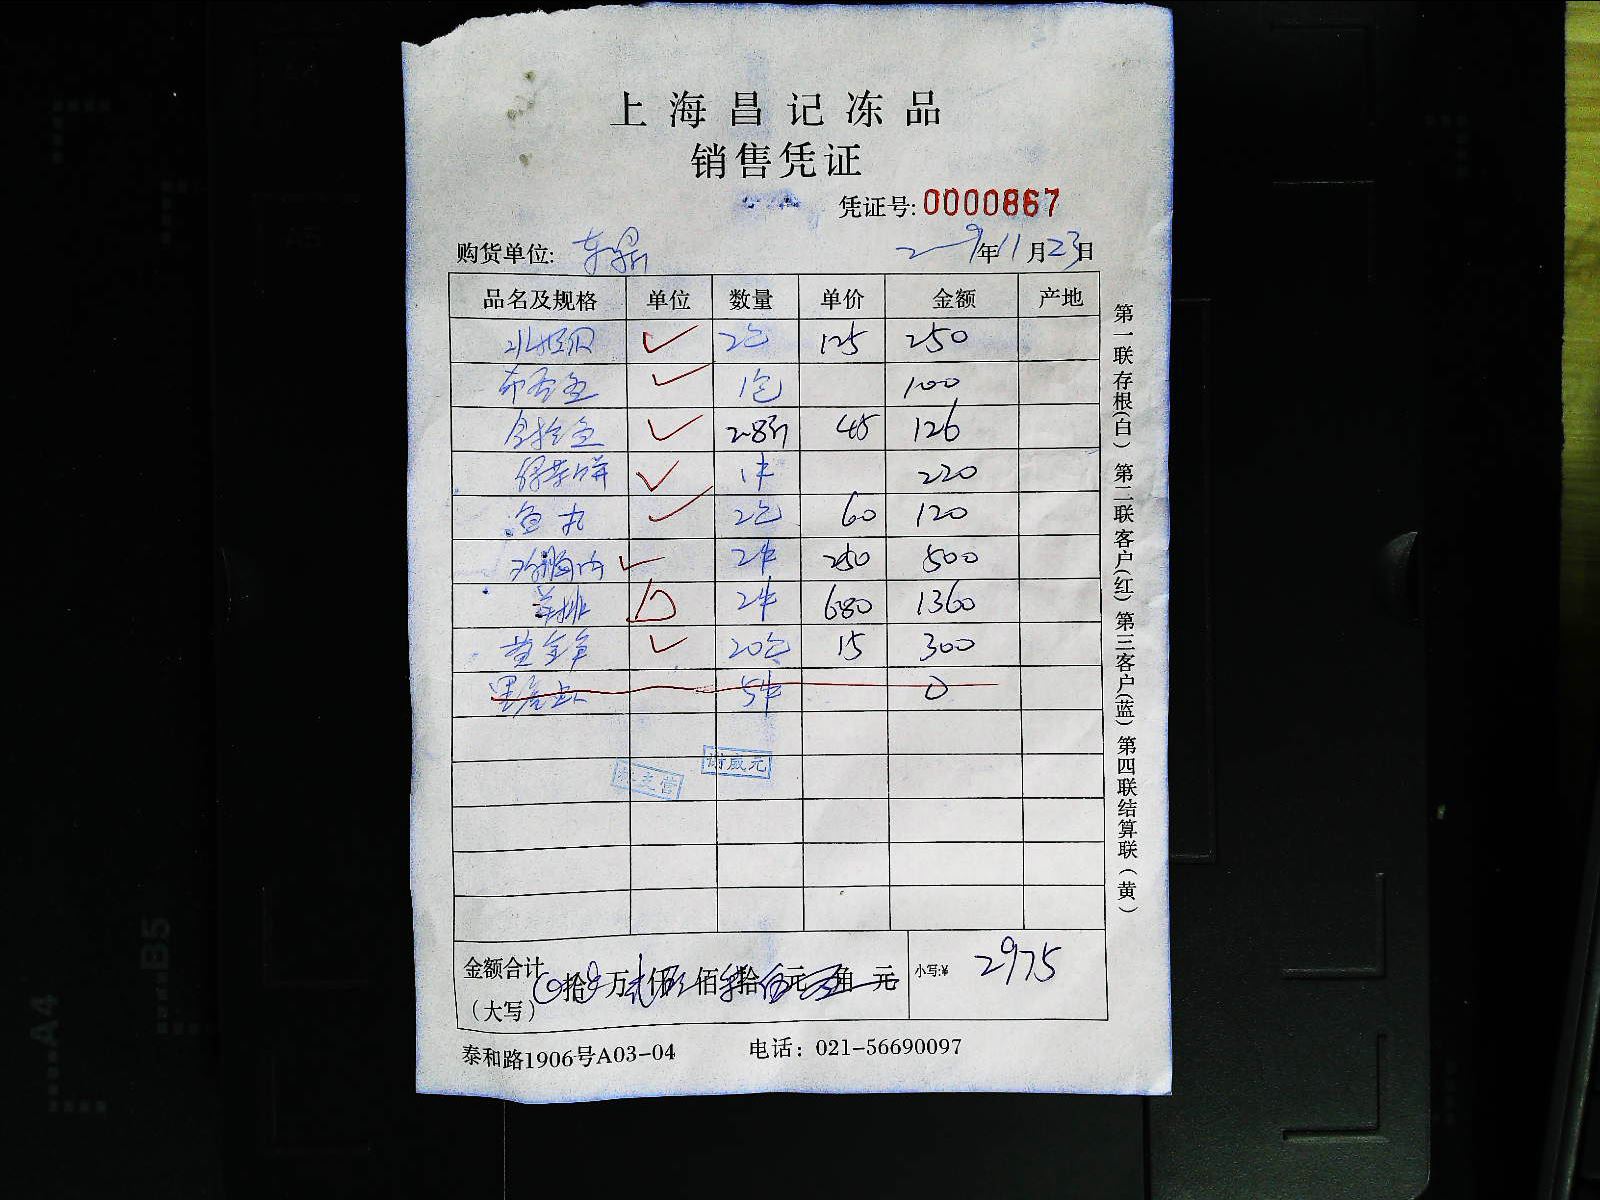 上海昌记冻品
销售凭证
凭证号: 0000867
购货单位: 东鼎 年11月23日
品名及规格 单位 数量 单价 金额 产地
2包 125 250
1包 100
2.8斤 45 126
绿茶饼 1件 220
鱼丸 2包 60 120
鸡胸肉 2件 250 500
羊排 2件 680 1360
20包 15 300
5件 0
谢威元
金额合计 拾 万 仟 佰 拾 元 角 元 小写:¥ 2975
（大写）
泰和路1906号A03-04 电话：021-56690097
第一联存根(白) 第二联客户(红) 第三客户(蓝) 第四联结算联(黄)